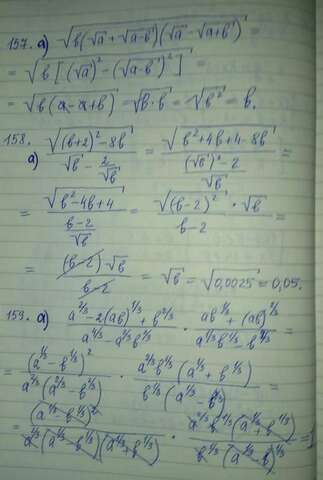 157. а) √(b(√a + √(a-b))(√a - √(a+b))) =
= √(b[(√a)² - (√(a-b))²]) =
= √(b(a - a + b)) = √(b·b) = √(b²) = b.
158. а) √((b+2)² - 8b) / (√b - 2/√b) = √(b² + 4b + 4 - 8b) / (((√b)² - 2)/√b) =
= √(b² - 4b + 4) / ((b-2)/√b) = √((b-2)²) · √b / (b-2) =
= (b-2)√b / (b-2) = √b = √0,0025 = 0,05.
159. а) (a^(2/3) - 2(ab)^(1/3) + b^(2/3)) / (a^(4/3) - a^(2/3)b^(2/3)) · (ab^(1/3) + (ab)^(2/3)) / (a^(1/3)b^(1/3) - b^(2/3)) =
= (a^(1/3) - b^(1/3))² / (a^(2/3)(a^(2/3) - b^(2/3))) · a^(2/3)b^(1/3)(a^(1/3) + b^(1/3)) / (b^(1/3)(a^(1/3) - b^(1/3))) =
= (a^(1/3) - b^(1/3))² / (a^(2/3)(a^(1/3) - b^(1/3))(a^(1/3) + b^(1/3))) · a^(2/3)b^(1/3)(a^(1/3) + b^(1/3)) / (b^(1/3)(a^(1/3) - b^(1/3))) = 1